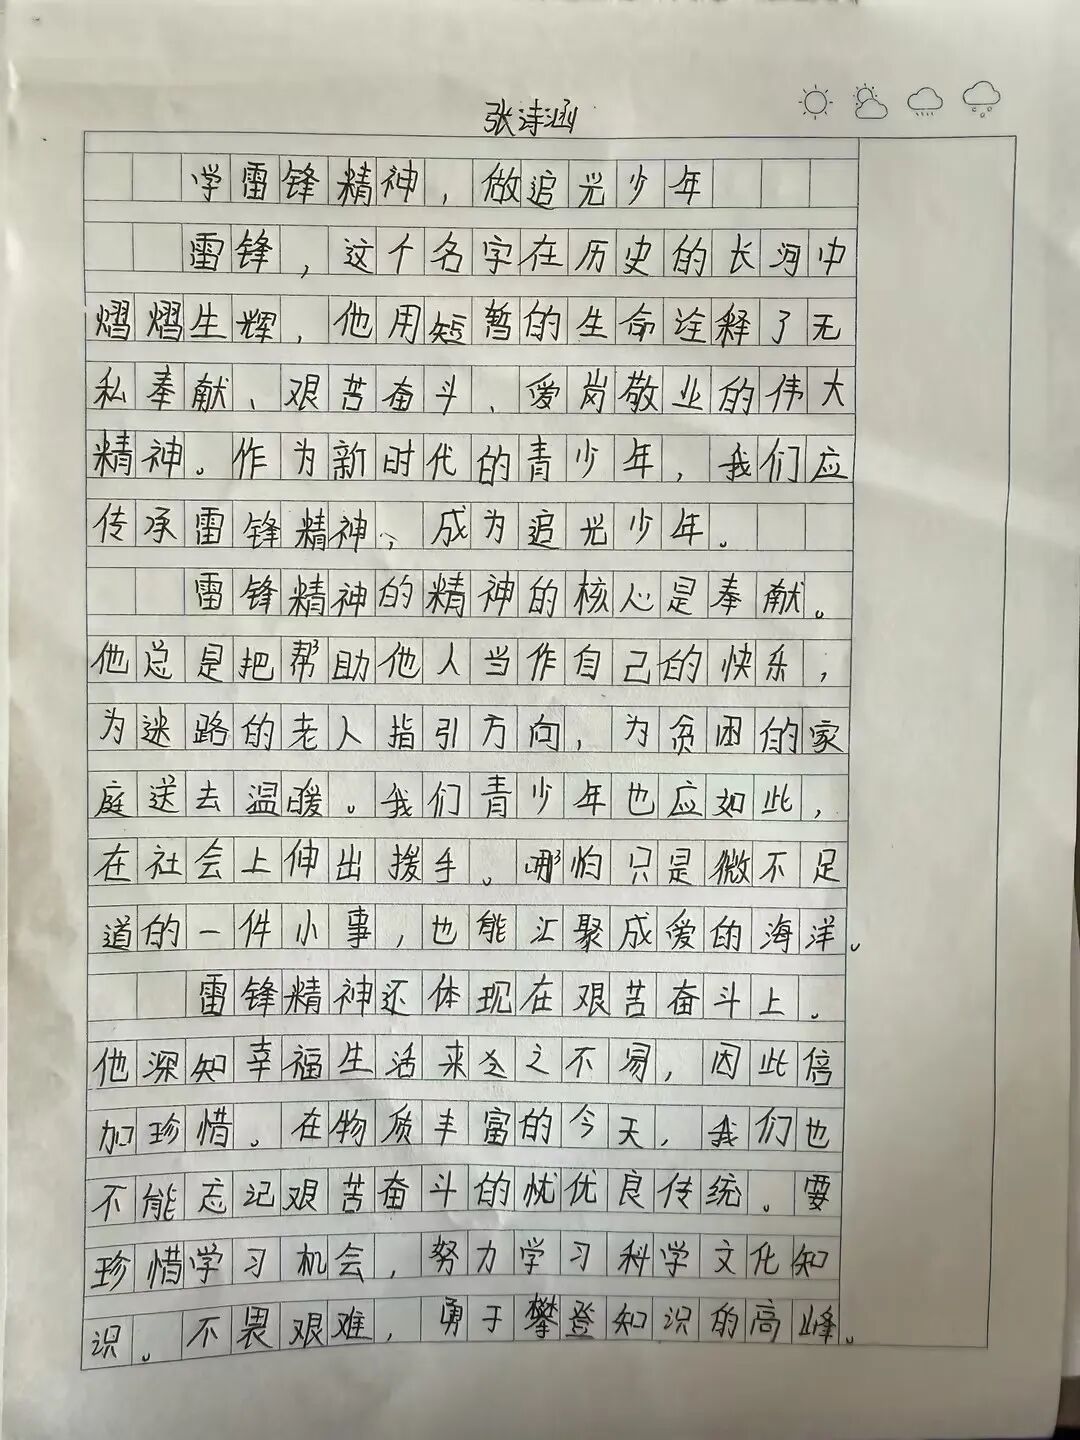 张诗涵
学雷锋精神，做追光少年
雷锋，这个名字在历史的长河中
熠熠生辉，他用短暂的生命诠释了无
私奉献、艰苦奋斗、爱岗敬业的伟大
精神。作为新时代的青少年，我们应
传承雷锋精神，成为追光少年。
雷锋精神的精神的核心是奉献。
他总是把帮助他人当作自己的快乐，
为迷路的老人指引方向，为贫困的家
庭送去温暖。我们青少年也应如此，
在社会上伸出援手。哪怕只是微不足
道的一件小事，也能汇聚成爱的海洋。
雷锋精神还体现在艰苦奋斗上。
他深知幸福生活来之不易，因此倍
加珍惜。在物质丰富的今天，我们也
不能忘记艰苦奋斗的优良传统。要
珍惜学习机会，努力学习科学文化知
识。不畏艰难，勇于攀登知识的高峰。